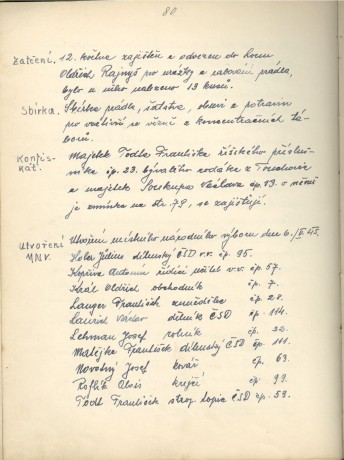 80
Zatčení. 12. května zajištěn a odvezen do Loun
Oldřich Rajnyš pro urážky a rabování prádla,
bylo u něho nalezeno 13 kusů.
Sbírka. Sbírka prádla, šatstva, obuvi a potravin
pro vězně z koncentračních tá-
borů.
Konfis- Majetek Födla Františka říšského přísluš-
kát. níka čp. 23. bývalého rodáka z
a majetek Soukupa Václava čp. 13. o němž
je zmínka na str. 79. se zajišťují.
Utvoření Utvoření místního národního výboru dne 6./
MNV. Julius dílenský ČSD v.v. čp. 95.
Kopřiva Antonín řídící učitel v.v. čp. 57.
Král Oldřich obchodník čp. 7.
Langer František čp. 28.
Václav dělník ČSD čp. 114.
Lehman Josef rolník čp. 22.
Matějka František dílenský ČSD čp. 111.
Novotný Josef kovář čp. 63.
Alois krejčí čp. 99.
Födl František stroj. topič ČSD čp. 59.